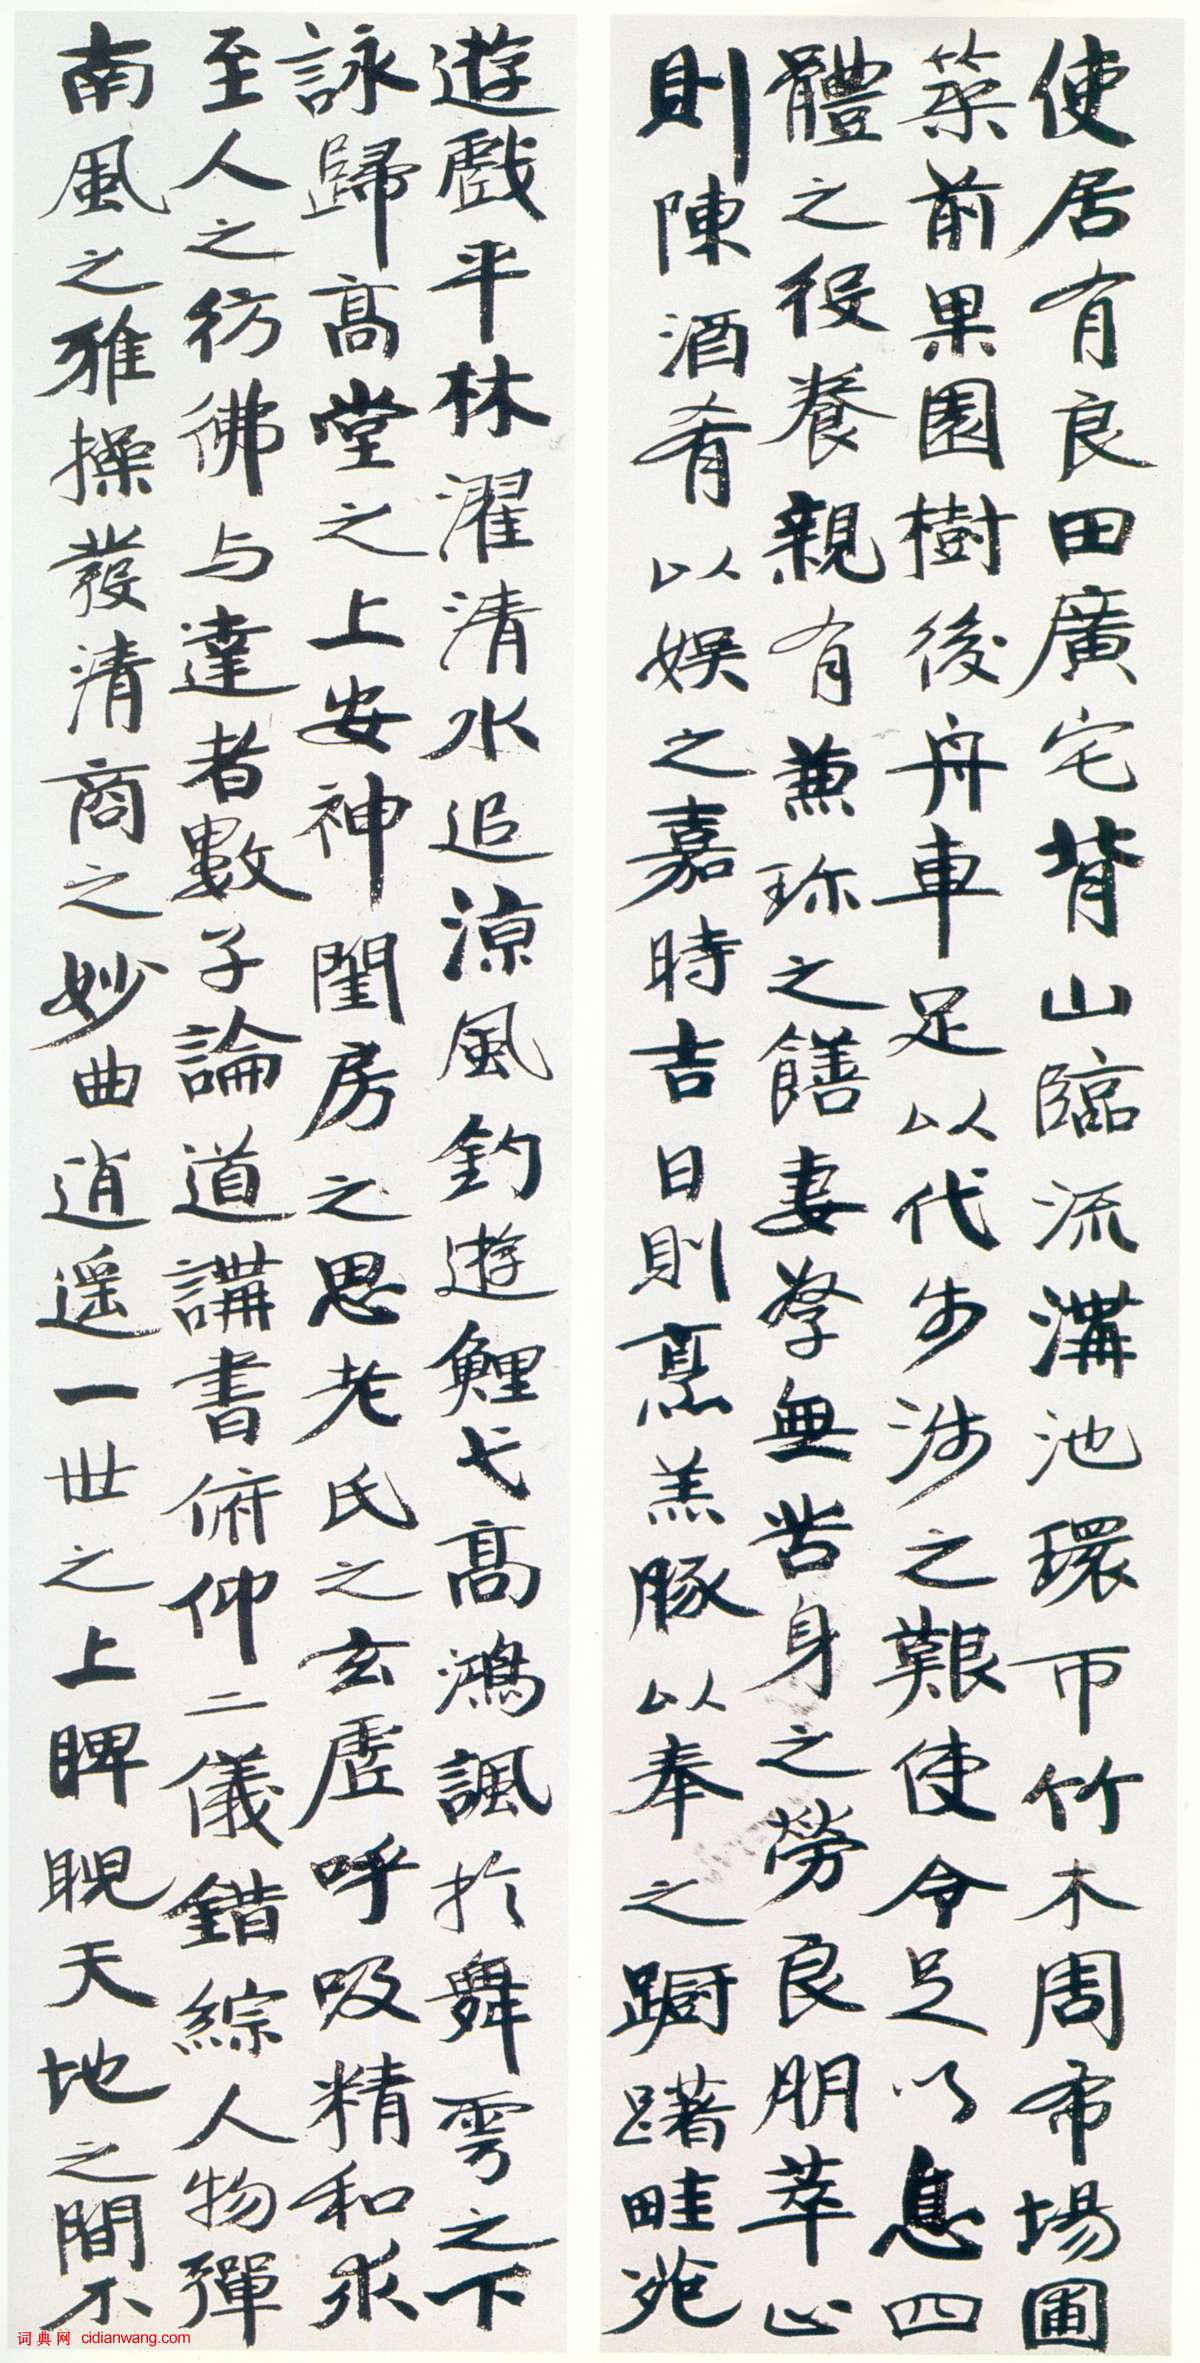 使居有良田廣宅背山臨流溝池環帀竹木周布場圃
築前果園樹後舟車足以代步涉之艱使令足以息四
體之役養親有兼珍之饍妻孥無苦身之勞良朋萃止
則陳酒肴以娱之嘉時吉日則烹羔豚以奉之躕躇畦苑
遊戲平林濯清水追涼風釣遊鯉弋高鴻諷於舞雩之下
詠歸高堂之上安神閨房之思老氏之玄虛呼吸精和求
至人之彷彿与達者數子論道講書俯仰二儀錯綜人物彈
南風之雅操發清商之妙曲逍遥一世之上睥睨天地之間不
词典网 cidianwang.com